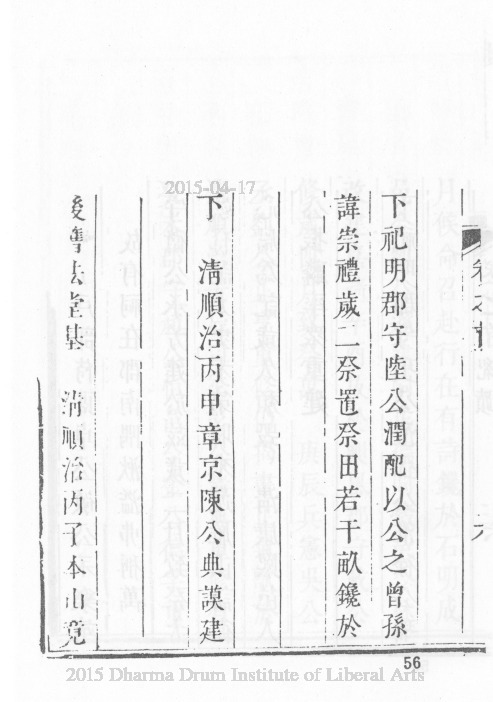 卷之貳
六
下祀明郡守陸公潤配以公之曾孫
諱崇禮歲二祭置祭田若干畝鑱於
下　清順治丙申章京陳公典謨建
後舊法堂基　清順治丙子本山竟
56
2015-04-17
2015 Dharma Drum Institute of Liberal Arts